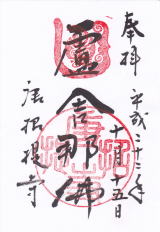 奉拝
平成二十三年
十一月十五日
盧舎那佛
唐招提寺